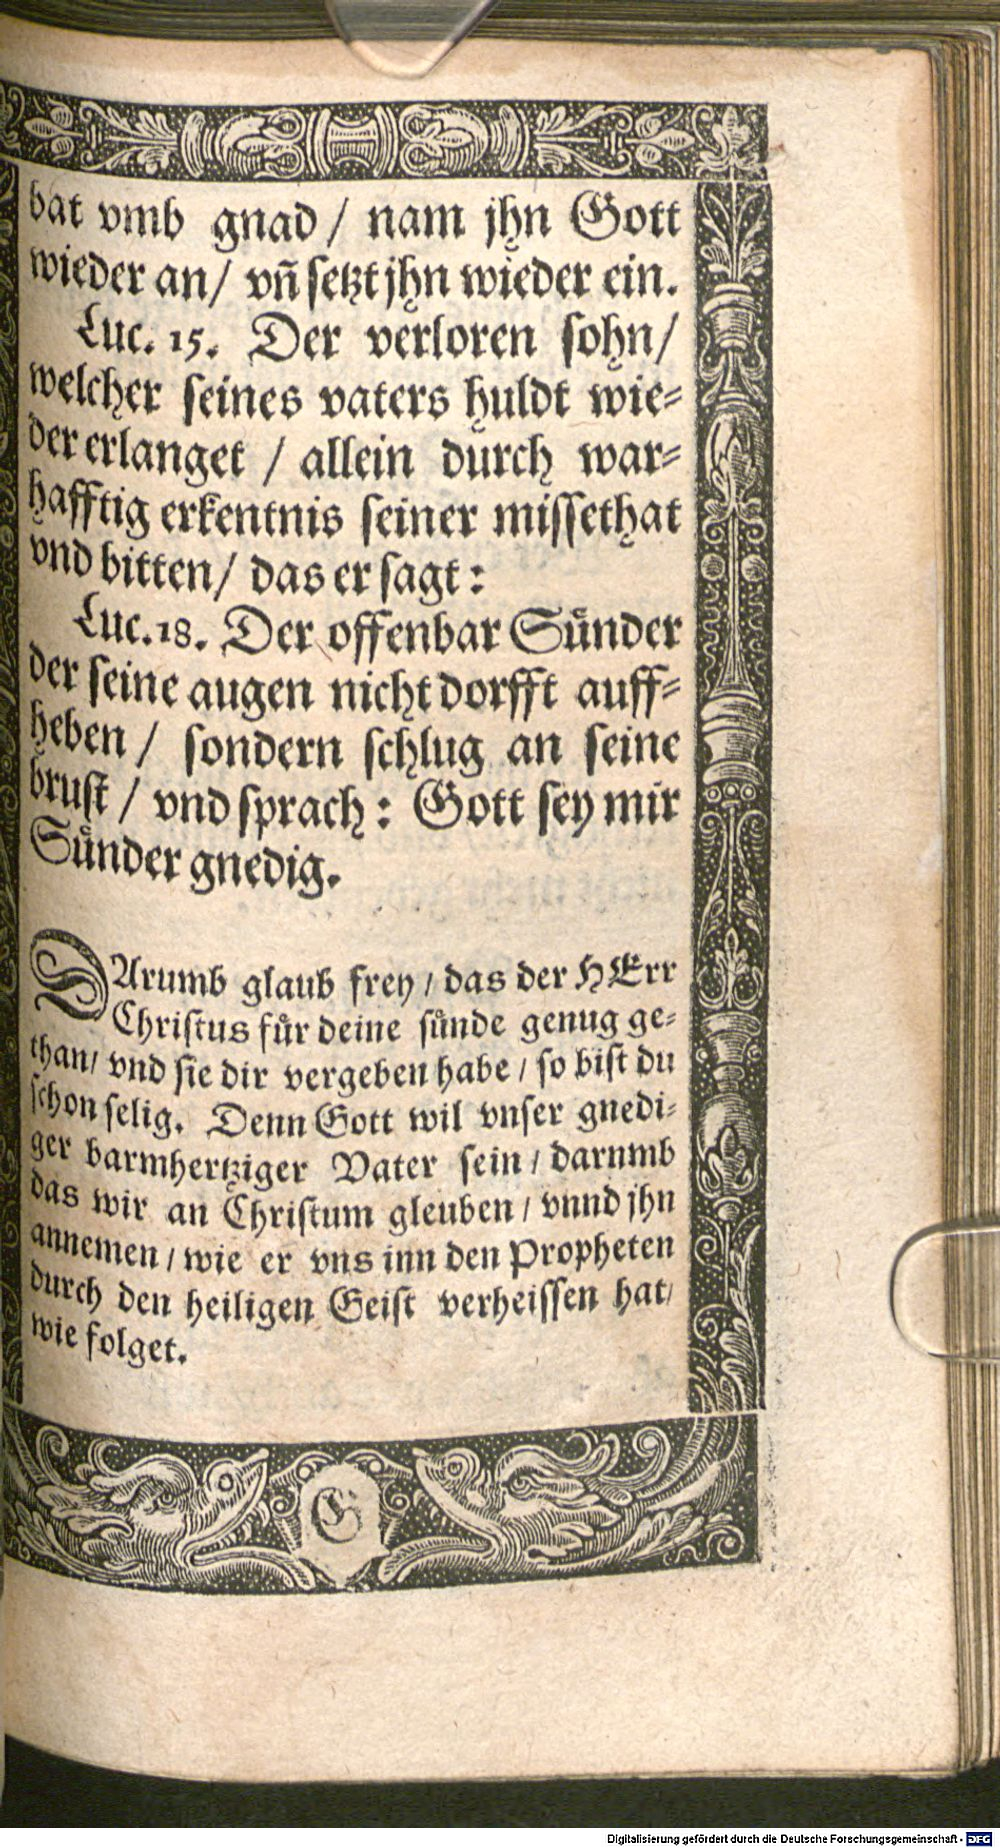 bat vmb gnad / nam jhn Gott
wieder an / vñ setzt jhn wieder ein.
Luc. 15. Der verloren sohn /
welcher seines vaters huldt wie⸗
der erlanget / allein durch war⸗
hafftig erkentnis seiner missethat
vnd bitten / das er sagt :
Luc. 18. Der offenbar Sůnder
der seine augen nicht dorfft auff⸗
heben / sondern schlug an seine
brust / vnd sprach : Gott sey mir
Sůnder gnedig.
DArumb glaub frey / das der HErr
Christus fůr deine sůnde genug ge⸗
than / vnd sie dir vergeben habe / so bist du
schon selig. Denn Gott wil vnser gnedi⸗
ger barmhertziger Vater sein / darumb
das wir an Christum gleuben / vnnd jhn
annemen / wie er vns inn den Propheten
durch den heiligen Geist verheissen hat /
wie folget.
G
Digitalisierung gefördert durch die Deutsche Forschungsgemeinschaft - DFG